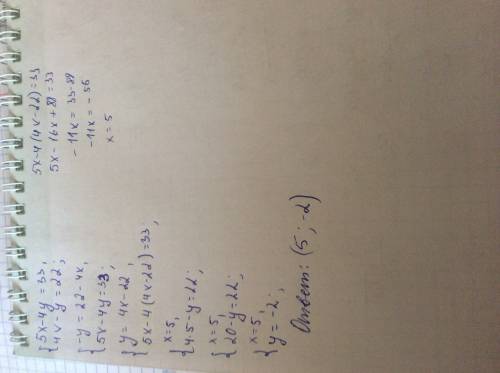 { 5x-4y = 33,
4x-y = 22;
{ -y = 22-4x,
5x-4y=33;
{ y = 4x-22,
5x-4(4x-22)=33;
x=5,
{ 4·5-y=22;
x=5,
{ 20-y=22;
x=5,
{ y=-2;
Ответ: (5; -2)
5x-4(4x-22)=33
5x-16x+88=33
-11x=33-88
-11x=-55
x=5